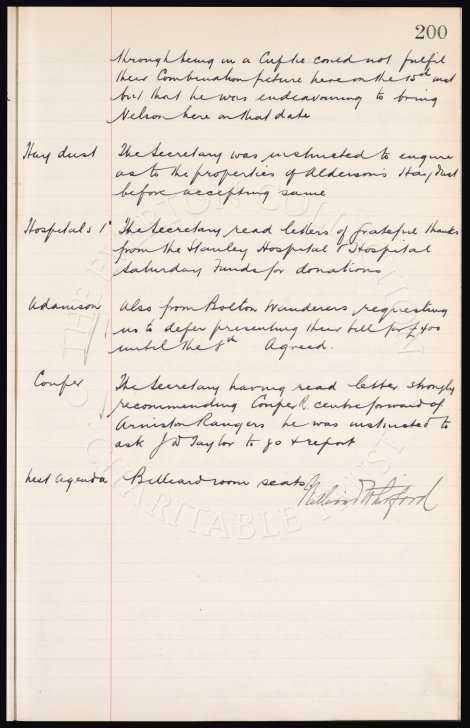 200
through being in a Cup tie could not fulfil
their Combination fixture here on the 15th inst
but that he was endeavouring to bring
Nelson here on that date
Hay dust The Secretary was instructed to enquire
as to the properties of Alderson's Hay Dust
before accepting same
Hospitals The Secretary read letters of grateful thanks
from the Stanley Hospital & Hospital
Saturday Funds for donations
Adamson Also from Bolton Wanderers requesting
us to defer presenting their bill for £400
until the 8th Agreed.
Couper The Secretary having read letter strongly
recommending Couper R. centre forward of
Arniston Rangers he was instructed to
ask J D Taylor to go & report
next agenda Billiard room seats
THE EVERTON COLLECTION
CHARITABLE TRUST